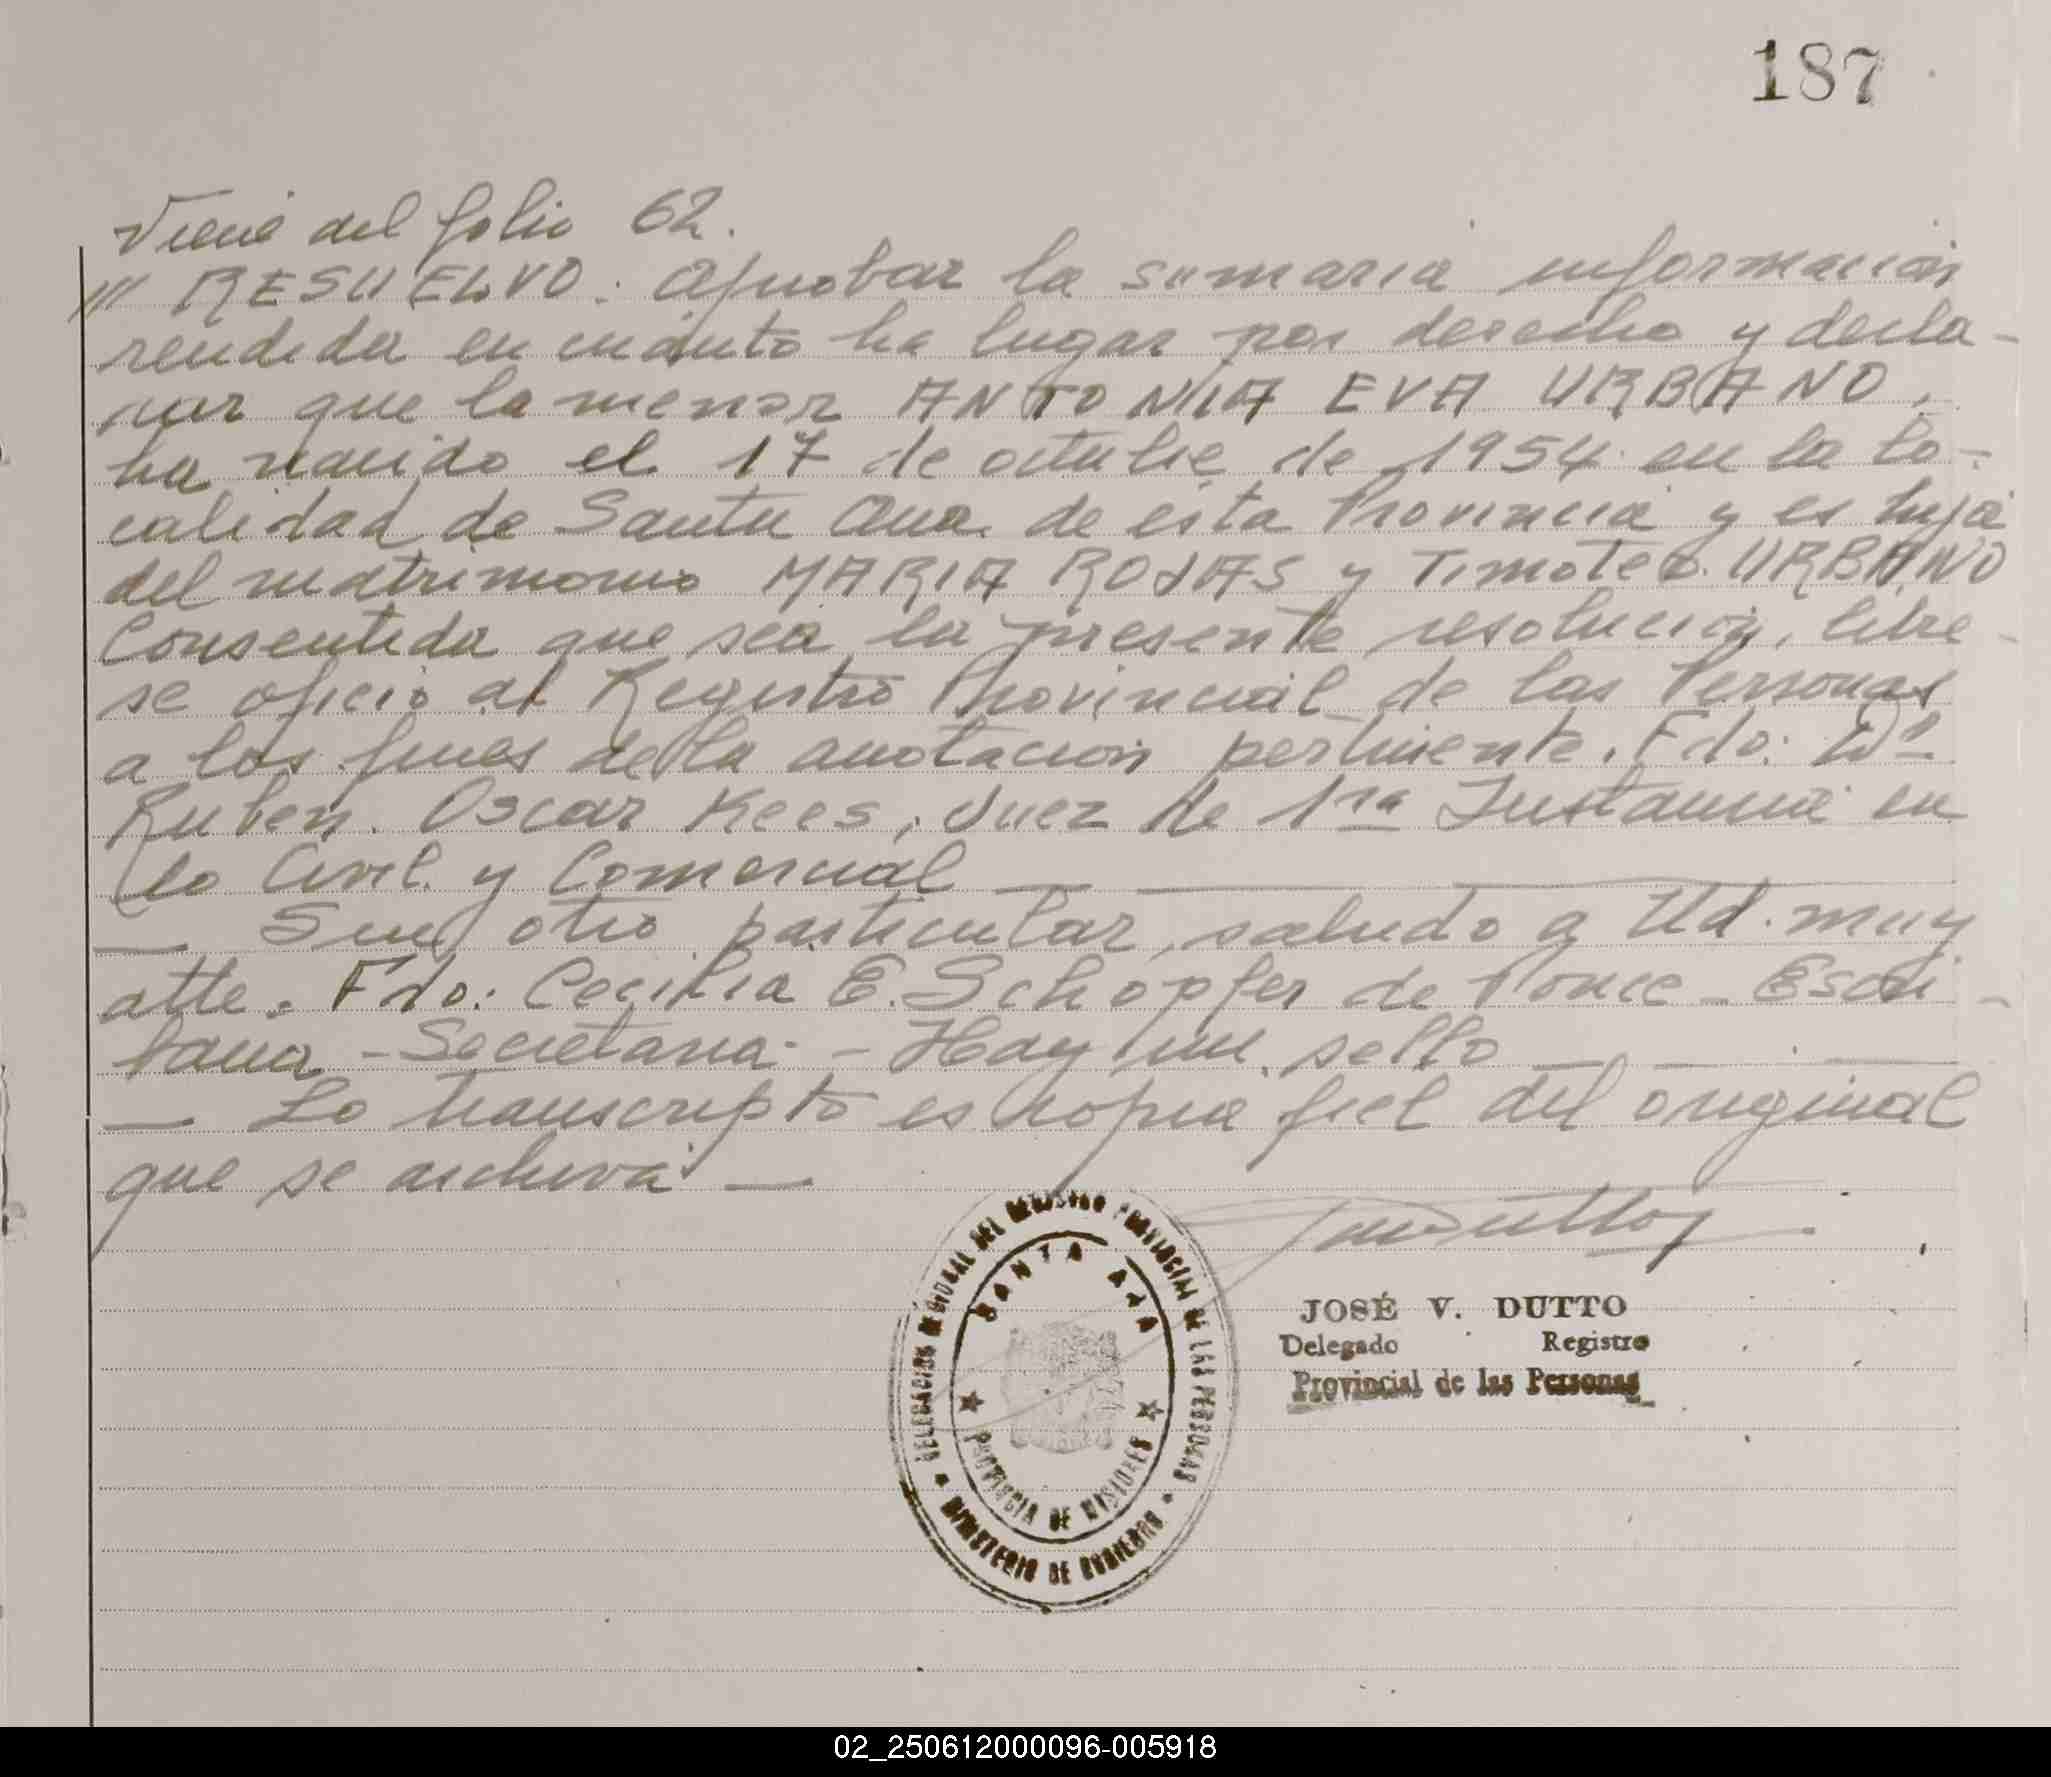 187
Viene del folio 62.
/// RESUELVO: Aprobar la sumaria información
rendida en cuánto ha lugar por derecho y decla-
rar que la menor ANTONIA EVA URBANO,
ha nacido el 17 de octubre de 1954 en la lo-
calidad de Santa Ana de esta Provincia y es hija
del matrimonio MARIA ROJAS y Timoteo URBANO
Consentida que sea la presente resolución, líbre-
se oficio al Registro Provincial de las Personas
a los fines de la anotación pertinente. Fdo: Dr.
Ruben Oscar Kees, Juez de 1ra Instancia en
lo Civil y Comercial
Sin otro particular, saludo a Ud. muy
atte. Fdo: Cecilia E. Schöpfer de Ponce - Escri-
bana - Secretaria - Hay un sello
Lo transcripto es copia fiel del original
que se archiva
DELEGACION REGIONAL DEL REGISTRO PROVINCIAL DE LAS PERSONAS
SANTA ANA
PROVINCIA DE MISIONES
MINISTERIO DE GOBIERNO
JOSÉ V. DUTTO
Delegado Registro
Provincial de las Personas
02_250612000096-005918